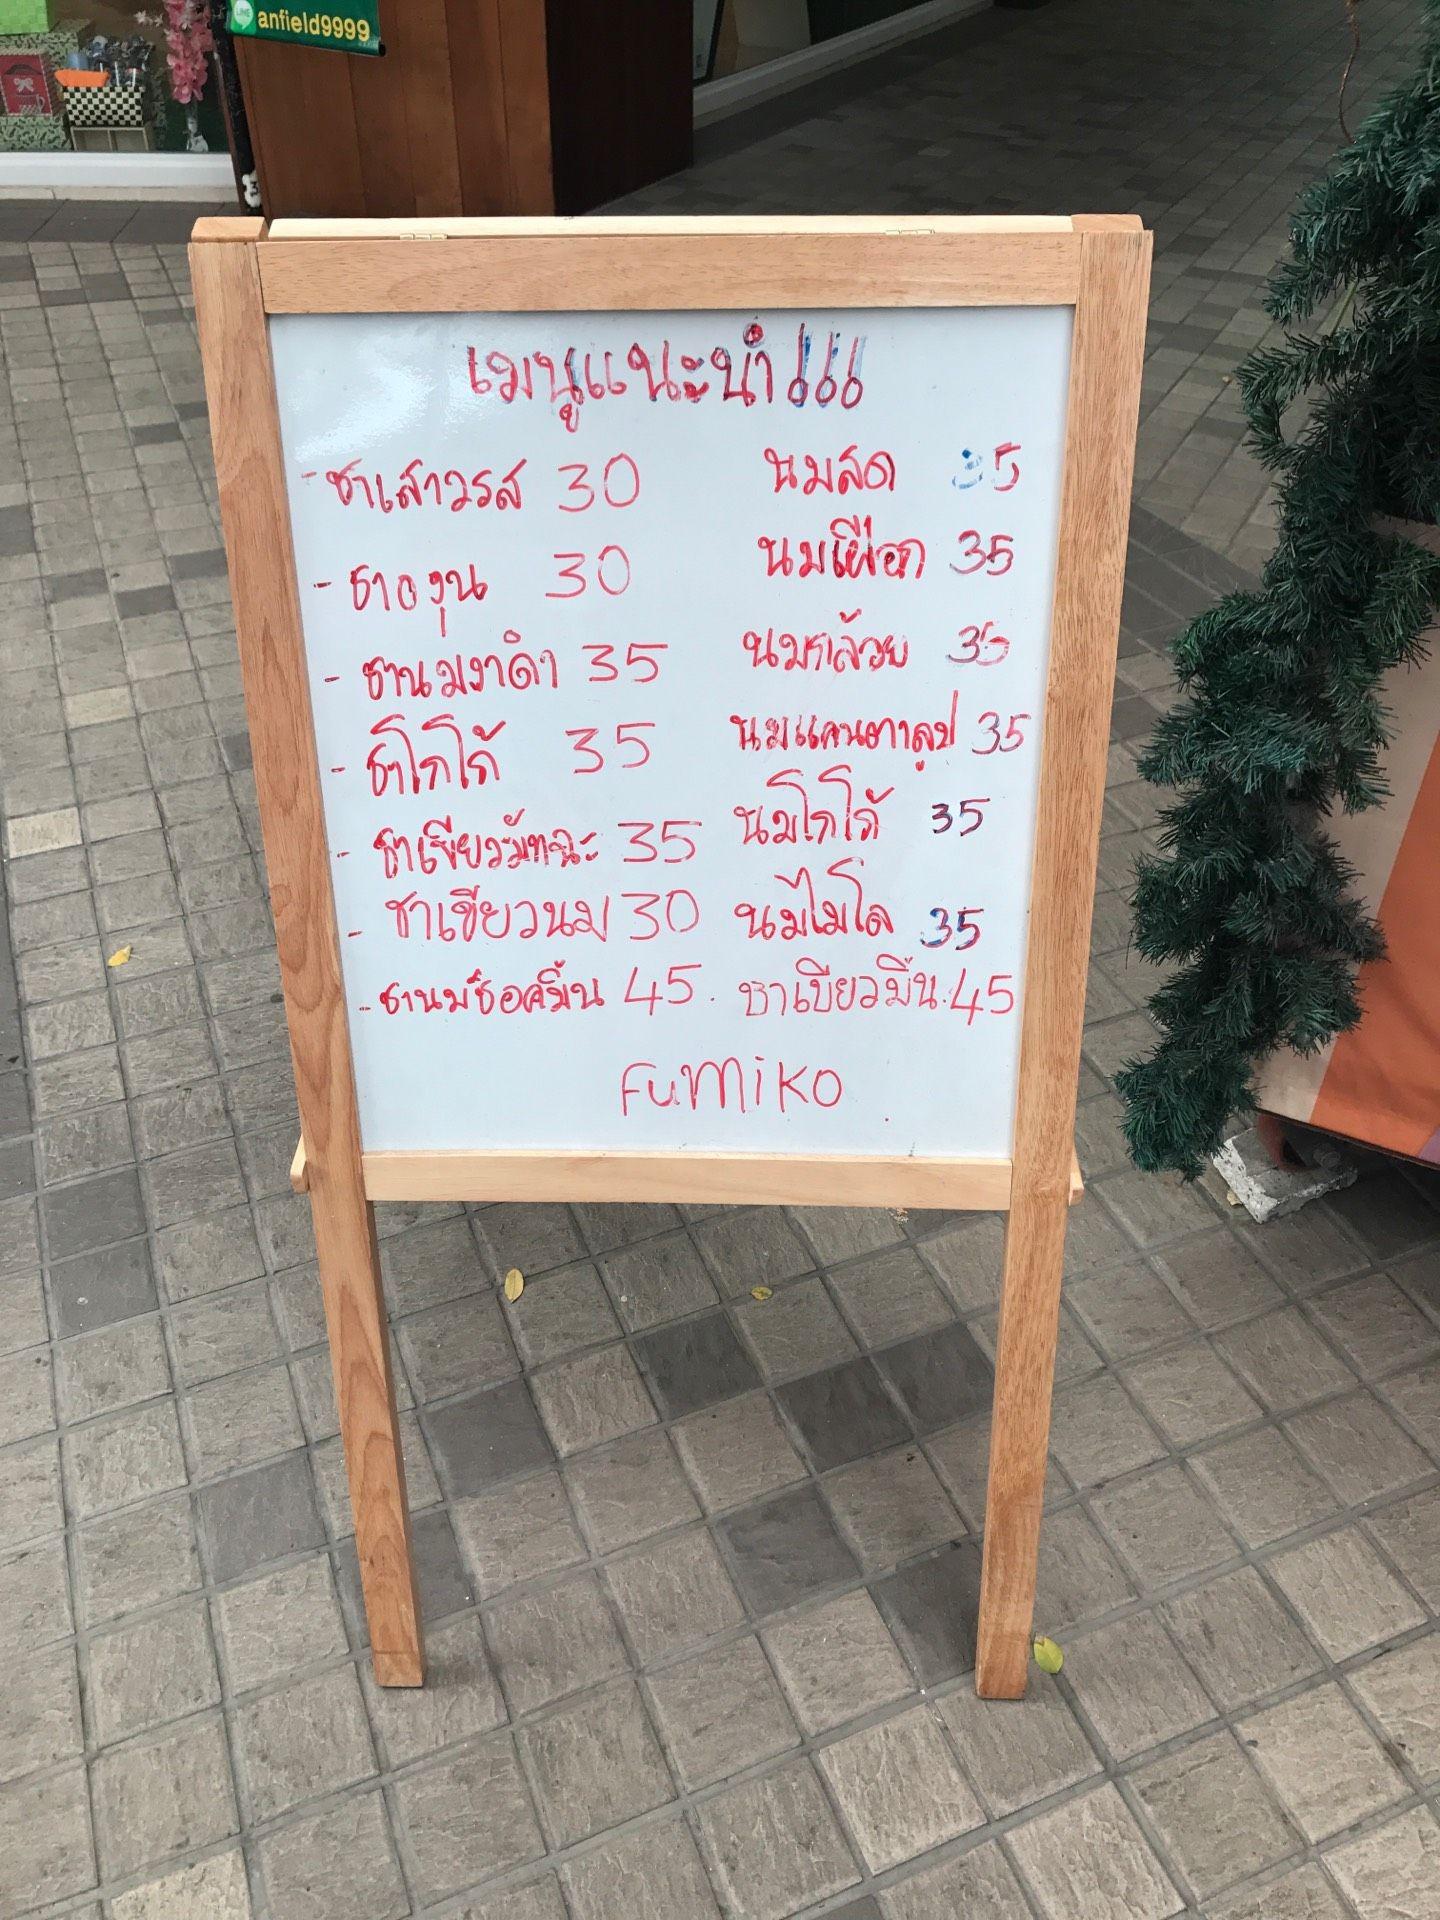 LINE anfield9999
เมนูแนะนำ!!!
- ชาเสาวรส 30
- ชาองุ่น 30
- ชานมงาดำ 35
- ชาโกโก้ 35
- ชาเขียวมัทฉะ 35
- ชาเขียวนม 30
- ชานมช็อคมิ้น 45.
นมสด 35
นมเผือก 35
นมกล้วย 35
นมแคนตาลูป 35
นมโกโก้ 35
นมไมโล 35
ชาเขียวมิ้น.45
FUMiKO